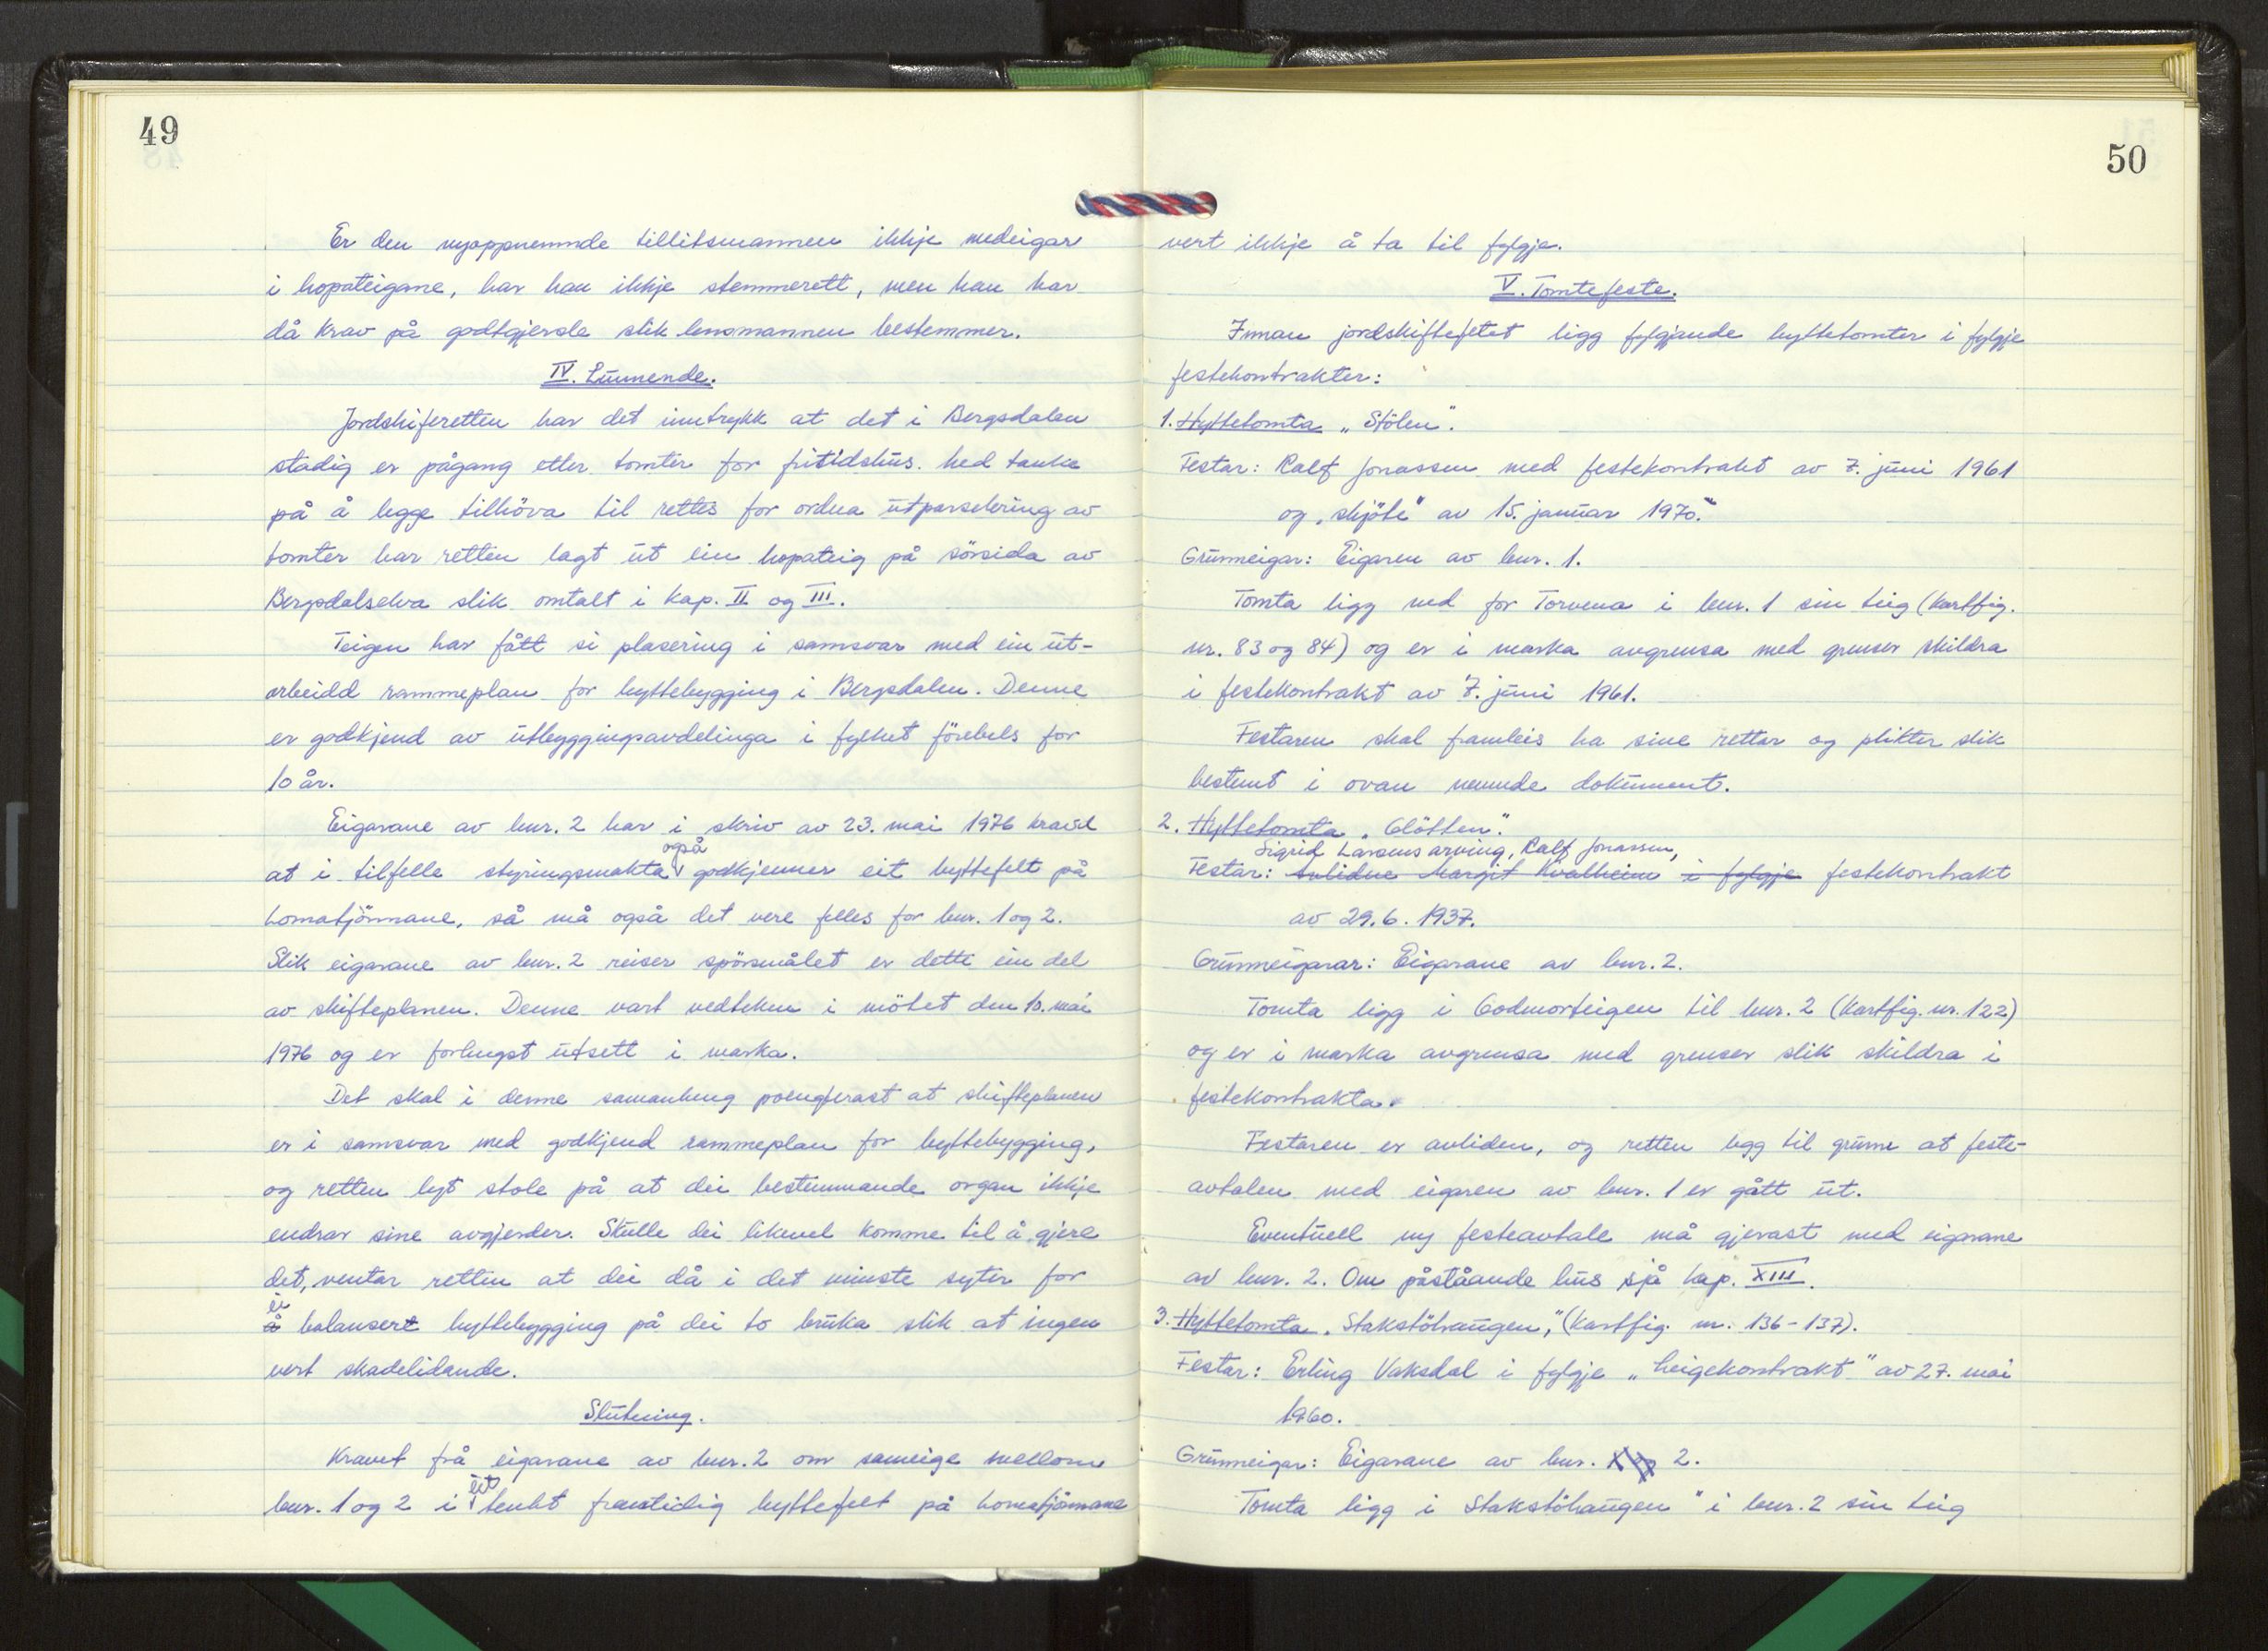 49
Er den nyoppnemnde tillitsmannen ikkje medeigar
i hopateigane, har han ikkje stemmerett, men han har
då krav på godtgjersle slik lensmannen bestemmer.
IV. Lunnende.
Jordskiferetten har det inntrykk at det i Bergsdalen
stadig er pågang etter tomter for fritidshus. Med tanke
på å legge tilhöva til rettes for ordna utparselering av
tomter har retten lagt ut ein hopateig på sörsida av
Bergsdalselva slik omtalt i kap. II og III.
Teigen har fått si plasering i samsvar med ein ut-
arbeidd rammeplan for hyttebygging i Bergsdalen. Denne
er godkjend av utbyggingsavdelinga i fylket förebels for
10 år.
Eigarane av bnr. 2 har i skriv av 23. mai 1976 kravd
også
at i tilfelle styringsmakta godkjenner eit hyttefelt på
Lomatjönnane, så må også det vere felles for bnr. 1 og 2.
Slik eigarane av bnr. 2 reiser spörsmålet er dette ein del
av skifteplanen. Denne vart vedteken i mötet den 10. mai
1976 og er forlengst utsett i marka.
Det skal i denne samanheng poengterast at skifteplanen
er i samsvar med godkjend rammeplan for hyttebygging,
og retten lyt stole på at dei bestemmande organ ikkje
endrar sine avgjerder. Skulle dei likevel komme til å gjere
det, ventar retten at dei då i det minste syter for
ei
å balansert hyttebygging på dei to bruka slik at ingen
vert skadelidande.
Slutning.
Kravet frå eigarane av bnr. 2 om sameige mellom
eit
bnr. 1 og 2 i tenkt framtidig hyttefelt på Lomatjönnane
50
vert ikkje å ta til fylgje.
V. Tomtefeste.
Innan jordskiftefeltet ligg fylgjande hyttetomter i fylgje
festekontrakter:
1. Hyttetomta „Stölen".
Festar: Ralf Jonassen med festekontrakt av 7. juni 1961
og „skjöte" av 15. januar 1970."
Grunneigar: Eigaren av bnr. 1.
Tomta ligg ned for Torvena i bnr. 1 sin teig (kartfig.
nr. 83 og 84) og er i marka avgrensa med grenser skildra
i festekontrakt av 7. juni 1961.
Festaren skal framleis ha sine rettar og plikter slik
bestemt i ovan nemnde dokument.
2. Hyttetomta „Glötten".
Sigrid Larsens arving, Ralf Jonassen,
Festar: Avlidne Margit Kvalheim i fylgje festekontrakt
av 29.6.1937.
Grunneigarar: Eigarane av bnr. 2.
Tomta ligg i Godmorteigen til bnr. 2 (kartfig. nr. 122)
og er i marka avgrensa med grenser slik skildra i
festekontrakta.
Festaren er avliden, og retten legg til grunn at feste-
avtalen med eigaren av bnr. 1 er gått ut.
Eventuell ny festeavtale må gjerast med eigarane
av bnr. 2. Om påståande hus sjå kap. XIII.
3. Hyttetomta „Stakstöhaugen," (kartfig. nr. 136-137).
Festar: Erling Vaksdal i fylgje „leigekontrakt" av 27. mai
1960.
Grunneigar: Eigarane av bnr. 2.
Tomta ligg i Stakstöhaugen" i bnr. 2 sin teig